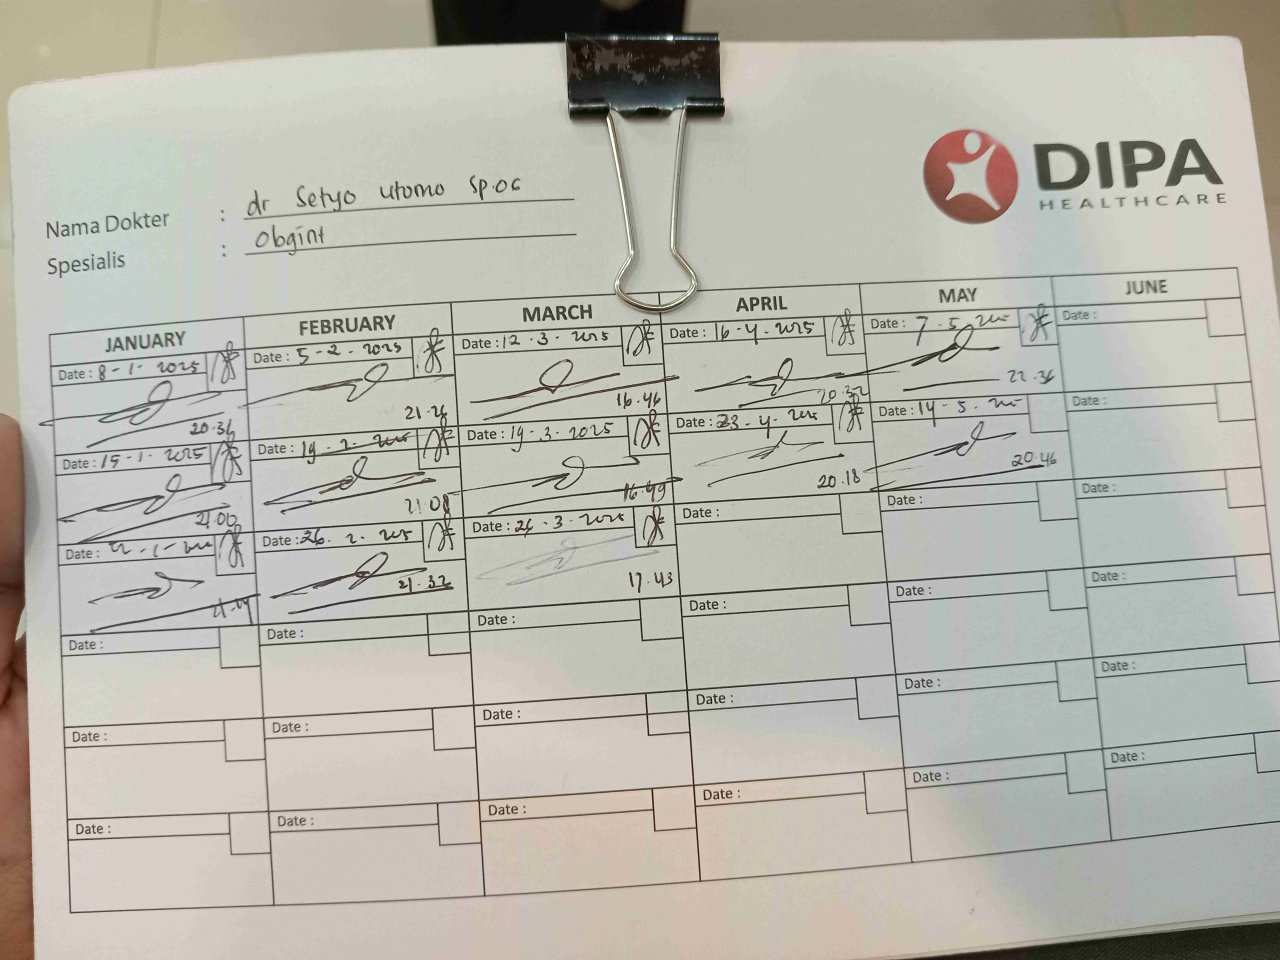 DIPA
HEALTHCARE
Nama Dokter : dr Setyo Utomo Sp.OG
Spesialis : Obgint
JANUARY FEBRUARY MARCH APRIL MAY JUNE
Date : 8-1-2025 Date : 5-2-2025 Date : 12-3-2025 Date : 16-4-2025 Date : 7-5- Date :
20.36 21.26 16.46 20.32 22.36
Date : 15-1-2025 Date : 19-2- Date : 19-3-2025 Date : 23-4-2025 Date : 14-5- Date :
21.00 21.08 16.49 20.18 20.46
Date : 22-1- Date : 26-2-2025 Date : 26-3-2025 Date : Date : Date :
21.32 17.43
Date : Date : Date : Date : Date : Date :
Date : Date : Date : Date : Date : Date :
Date : Date : Date : Date : Date : Date :